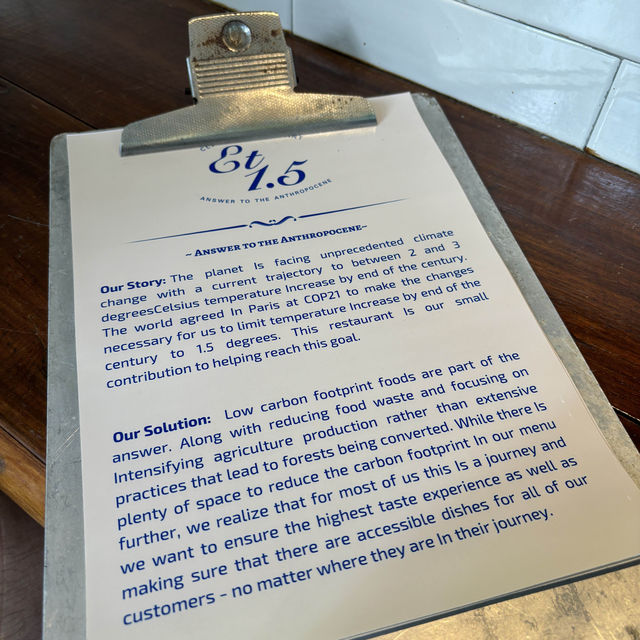 Et
1.5
ANSWER TO THE ANTHROPOCENE
~ ANSWER TO THE ANTHROPOCENE~
Our Story: The planet Is facing unprecedented climate
change with a current trajectory to between 2 and 3
degreesCelsius temperature Increase by end of the century.
The world agreed In Paris at COP21 to make the changes
necessary for us to limit temperature Increase by end of the
century to 1.5 degrees. This restaurant Is our small
contribution to helping reach this goal.
Our Solution: Low carbon footprint foods are part of the
answer. Along with reducing food waste and focusing on
Intensifying agriculture production rather than extensive
practices that lead to forests being converted. While there Is
plenty of space to reduce the carbon footprint In our menu
further, we realize that for most of us this Is a journey and
we want to ensure the highest taste experience as well as
making sure that there are accessible dishes for all of our
customers - no matter where they are In their journey.